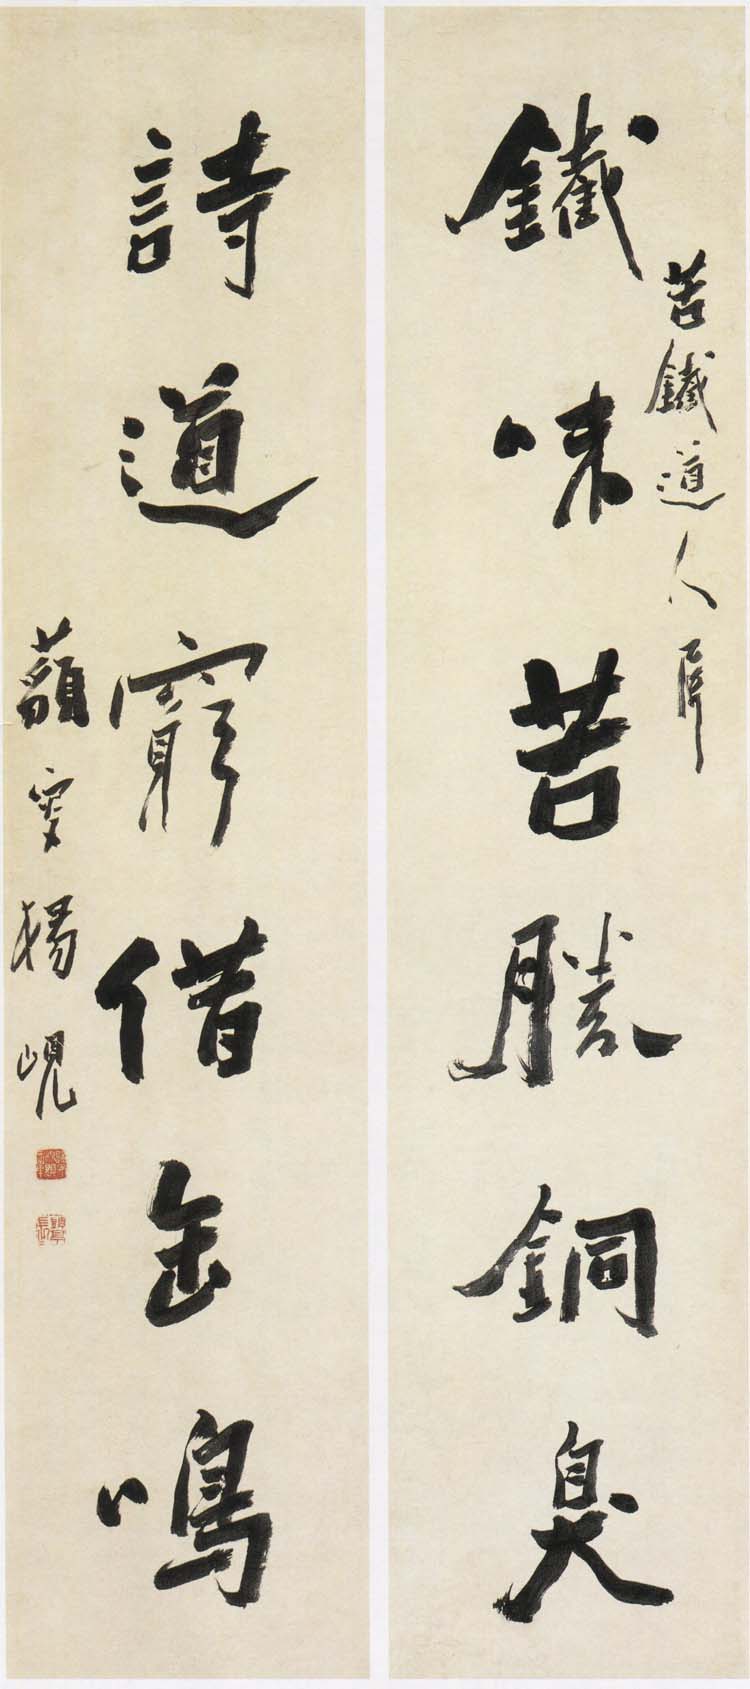 苦鐵道人
鐵味苦勝銅臭
詩道窮借缶鳴
藐叟楊峴